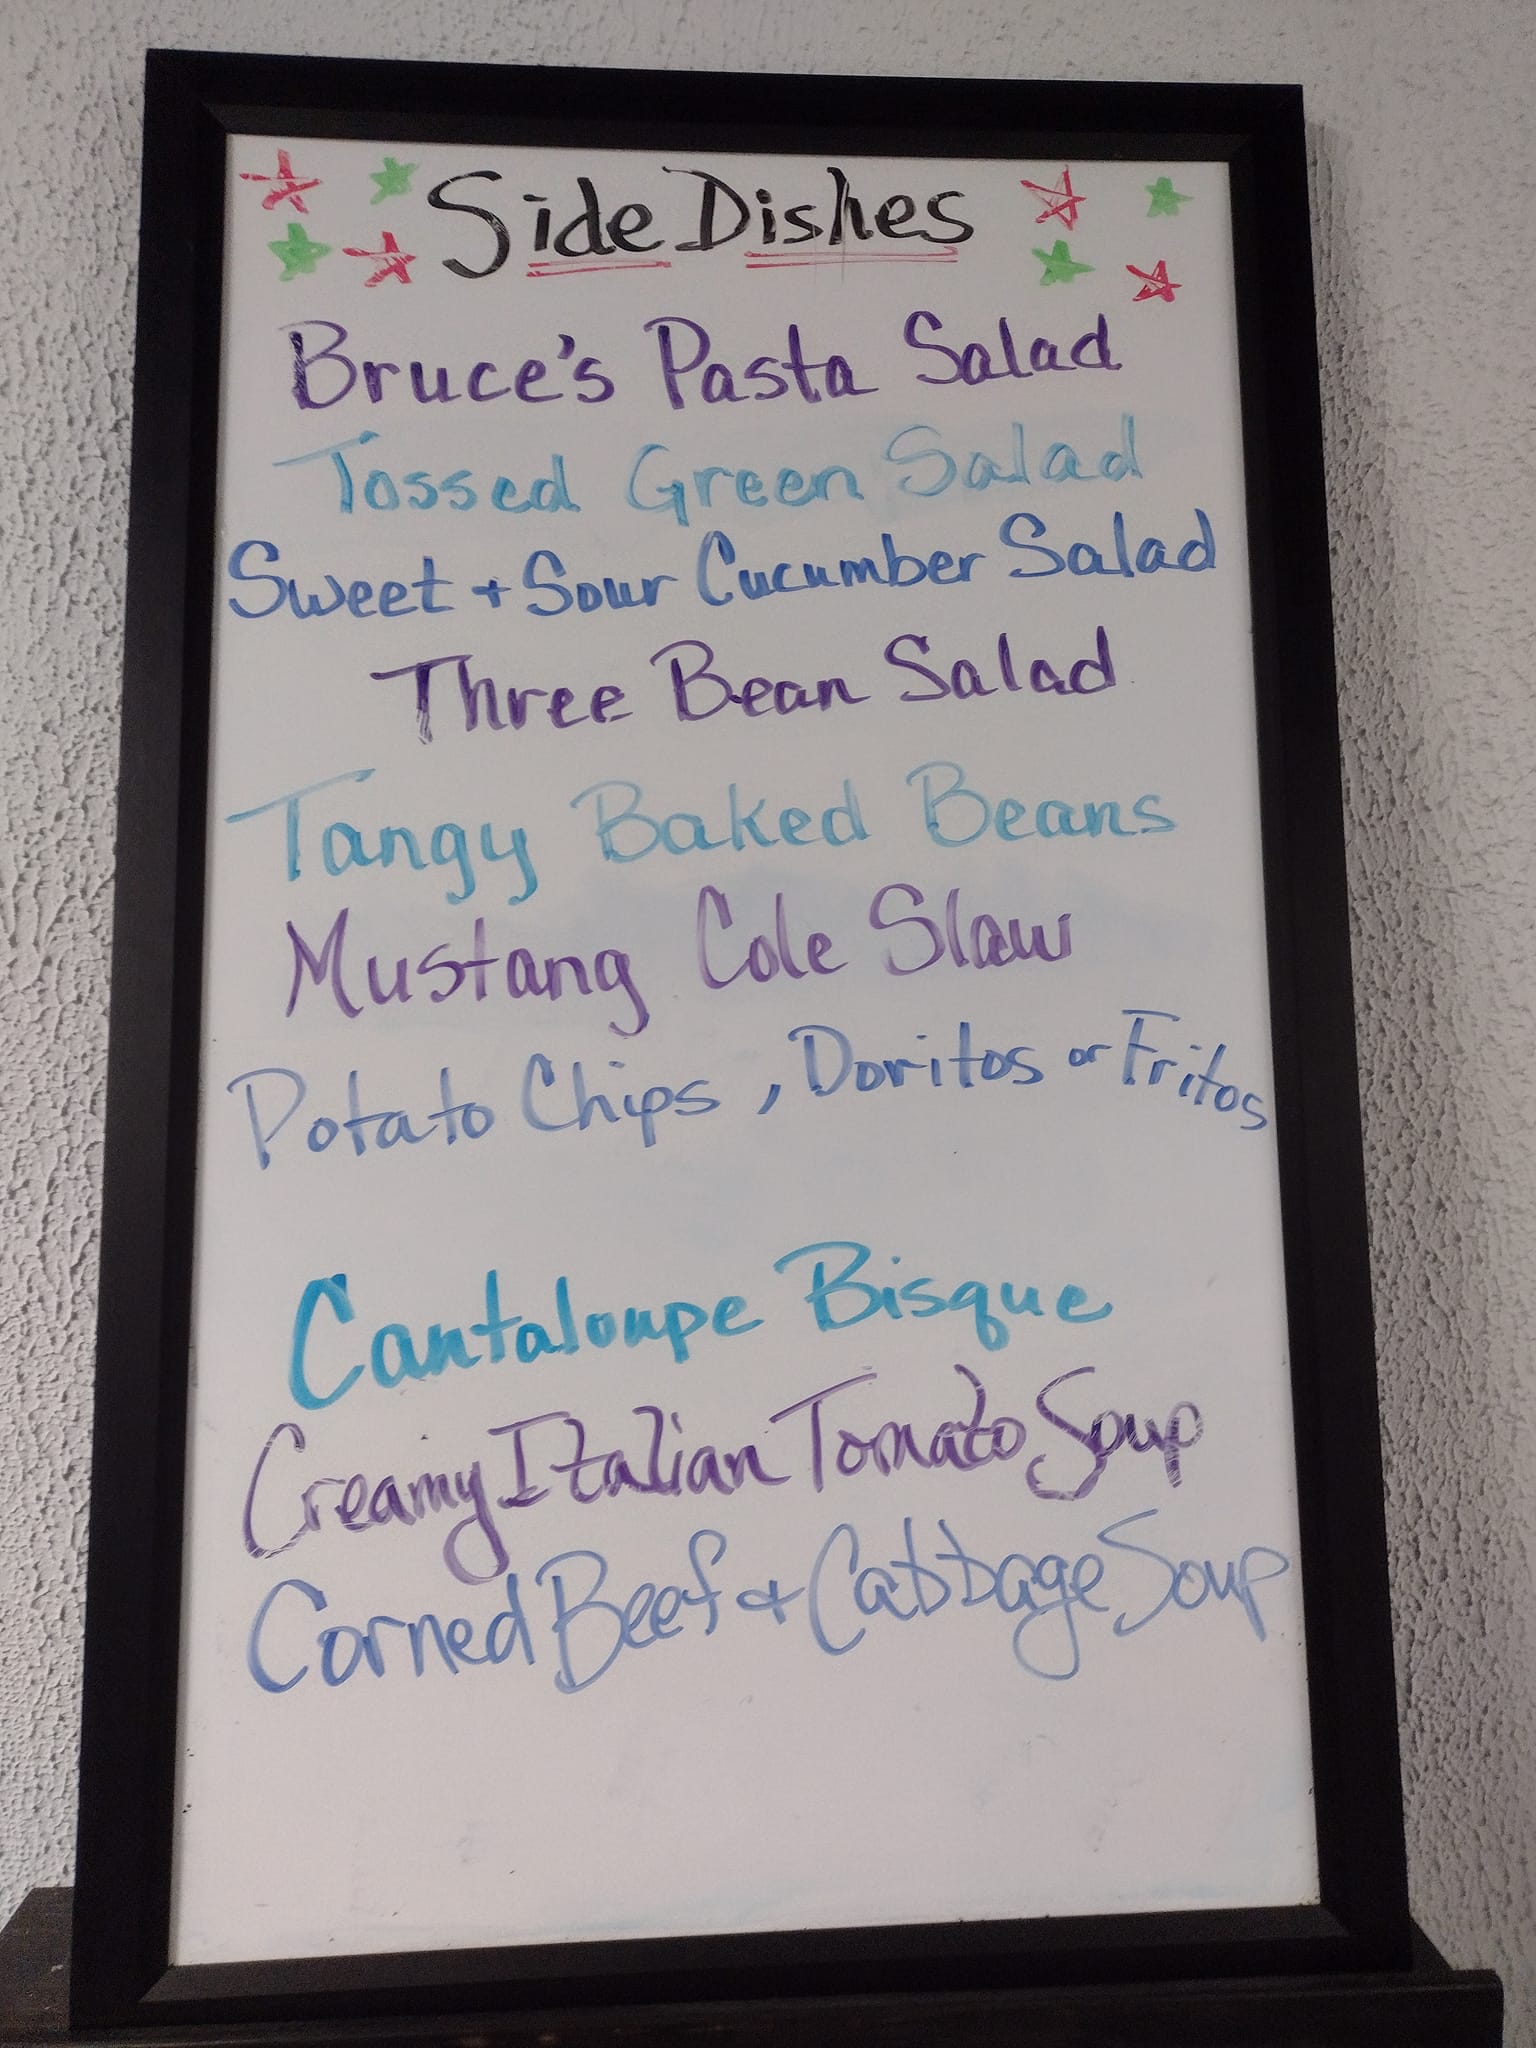 Side Dishes
Bruce's Pasta Salad
Tossed Green Salad
Sweet + Sour Cucumber Salad
Three Bean Salad
Tangy Baked Beans
Mustang Cole Slaw
Potato Chips, Doritos or Fritos
Cantaloupe Bisque
Creamy Italian Tomato Soup
Corned Beef + Cabbage Soup